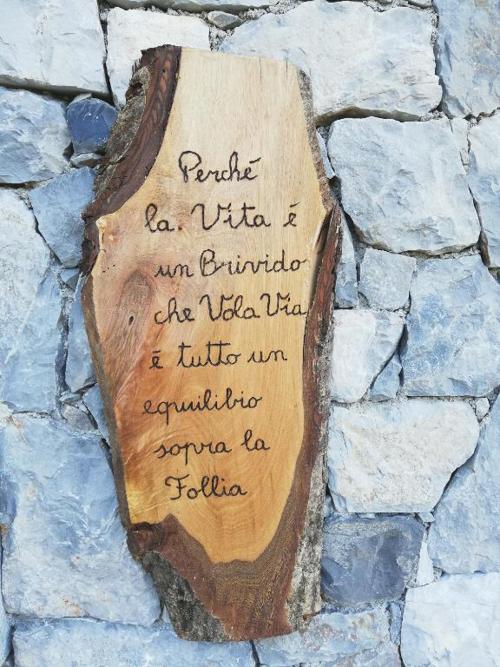 Perché
la. Vita é
un Brivido
che Vola Via
é tutto un
equilibio
sopra la
Follia